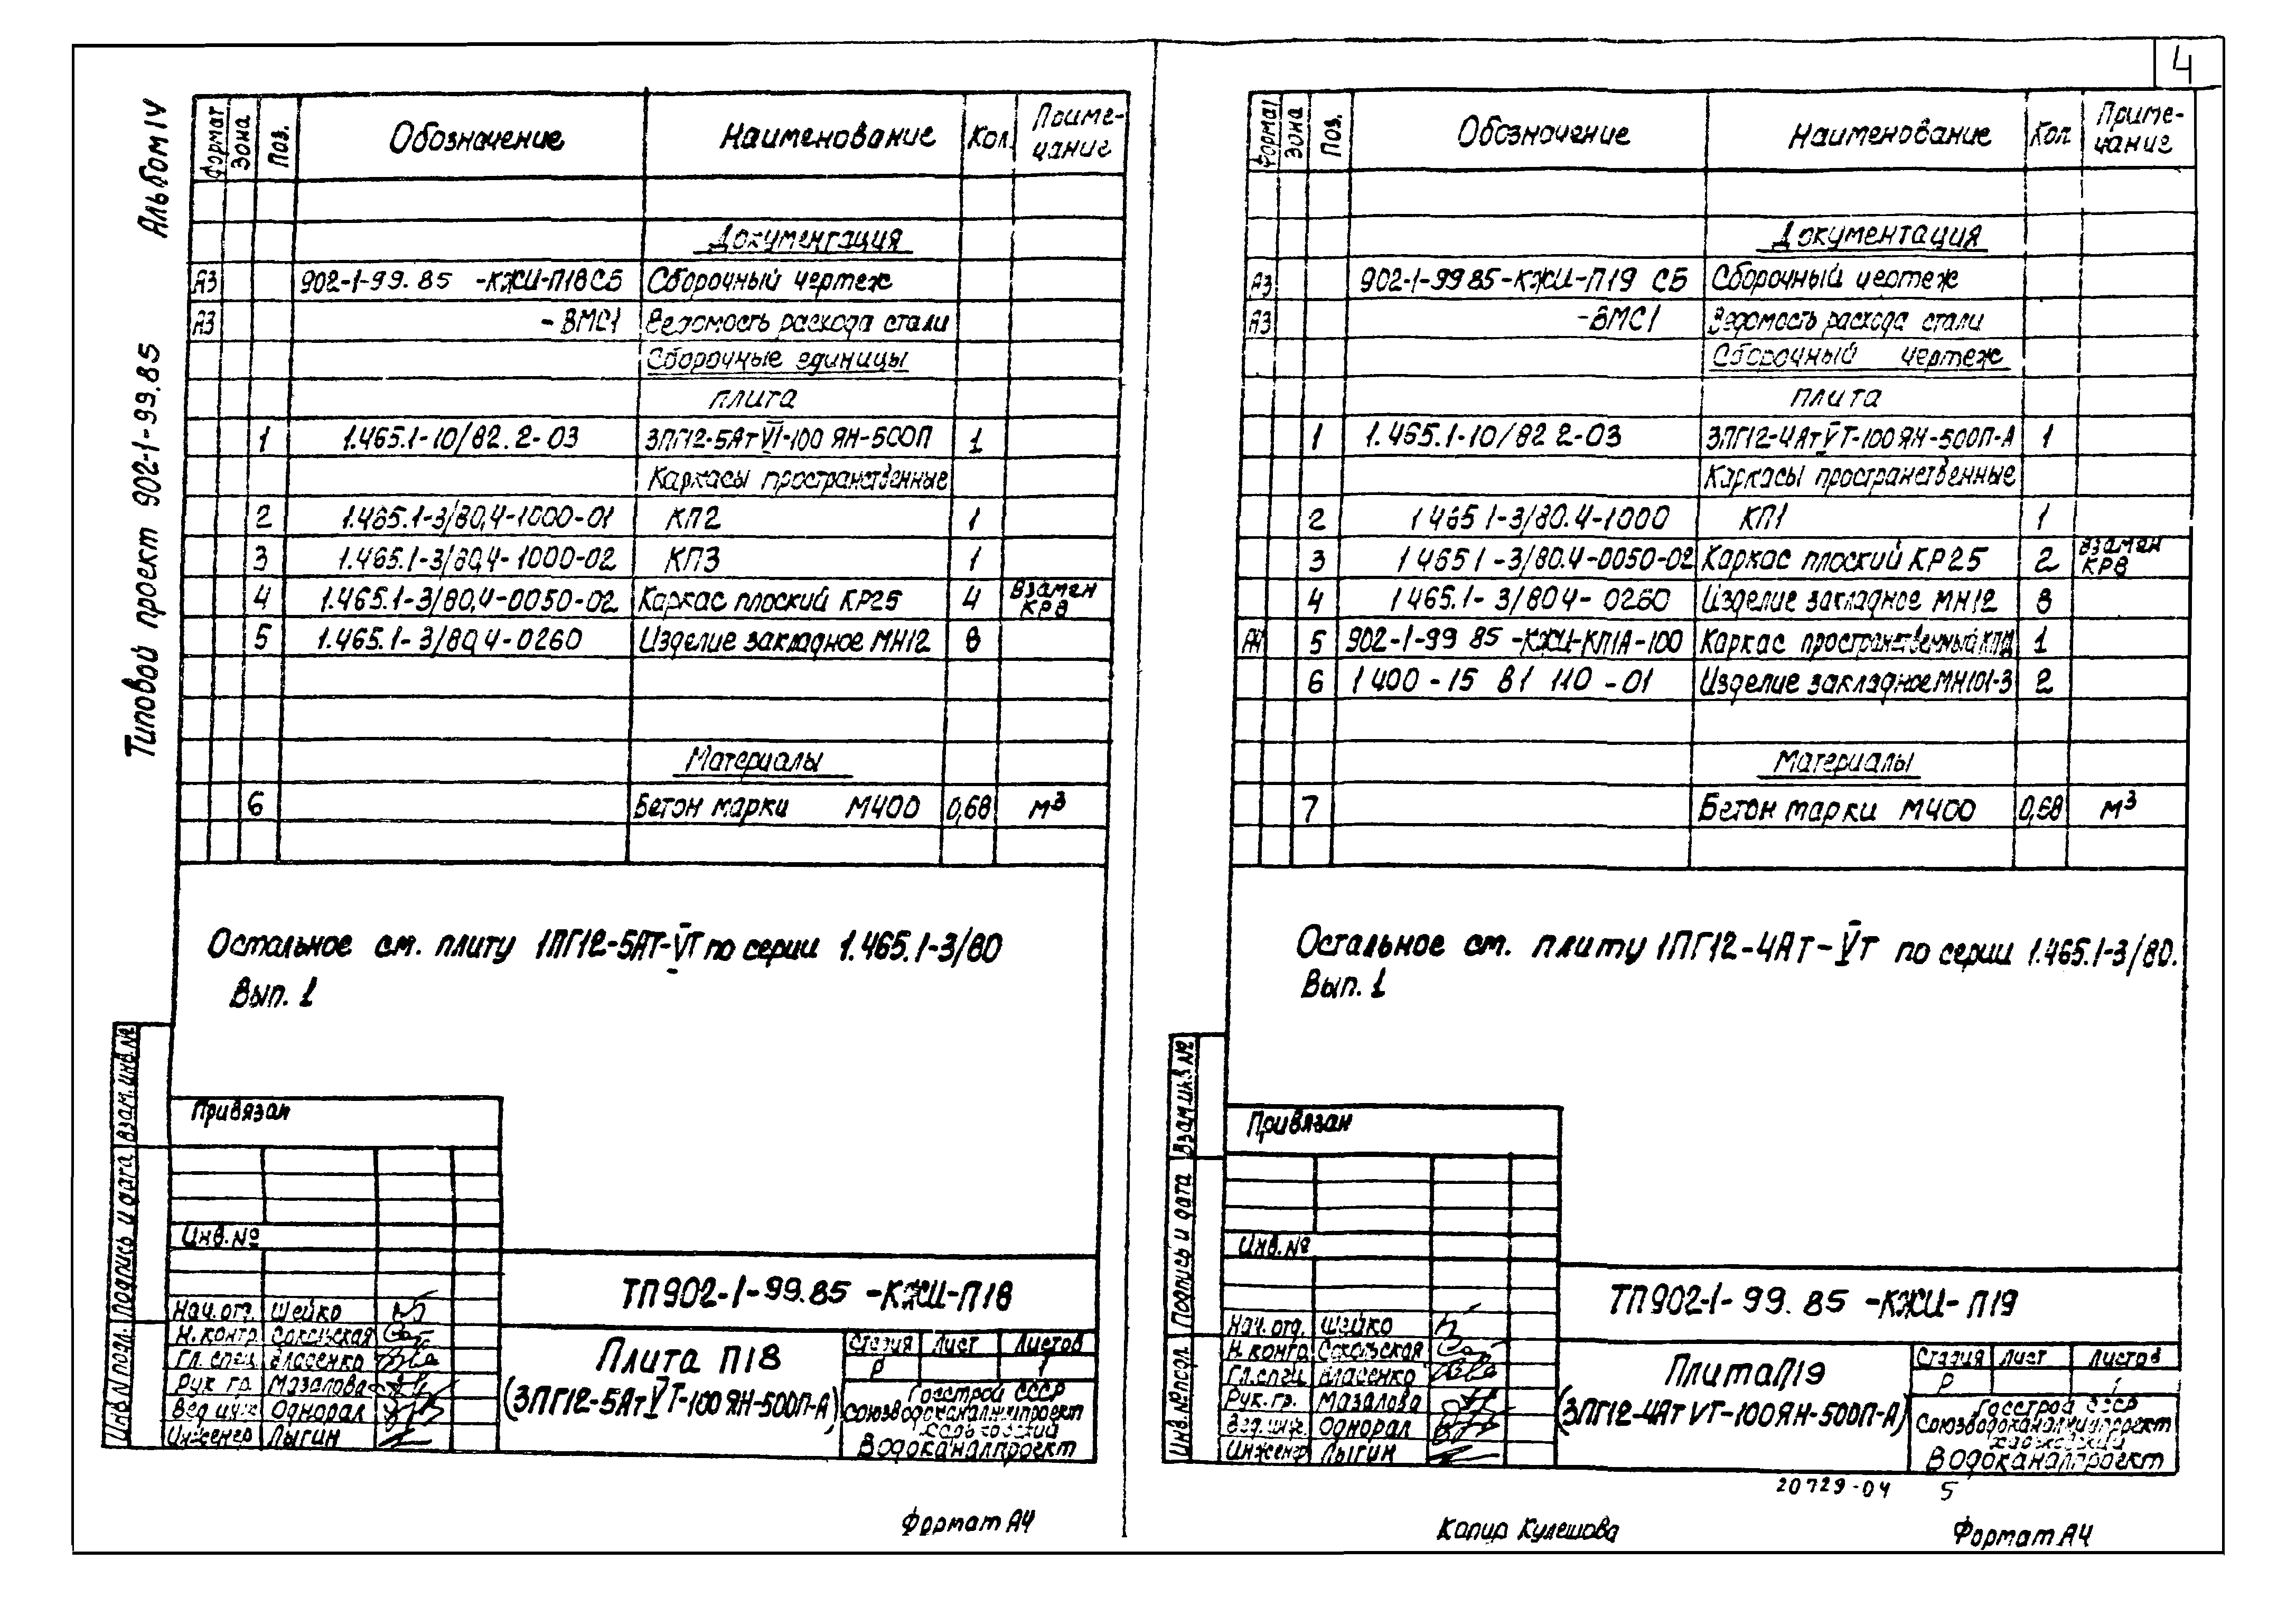 4
Альбом IV
Типовой проект 902-1-99.85
Формат Зона Поз. Обозначение Наименование Кол. Приме-чание
Документация
А3 902-1-99.85 -КЖИ-П18СБ Сборочный чертеж
А3 -ВМС1 Ведомость расхода стали
Сборочные единицы
плита
1 1.465.1-10/82.2-03 3ПГ12-5АтVI-100ЯН-500П 1
Каркасы пространственные
2 1.465.1-3/80,4-1000-01 КП2 1
3 1.465.1-3/80,4-1000-02 КП3 1
4 1.465.1-3/80,4-0050-02 Каркас плоский КР25 4 Взамен КР8
5 1.465.1-3/80,4-0260 Изделие закладное МН12 8
Материалы
6 Бетон марки М400 0,68 м3
Остальное см. плиту 1ПГ12-5АТ-VТ по серии 1.465.1-3/80
Вып. 1
Взам. инв. №
Подпись и дата
Инв. N подл.
Привязан
Инв. №
ТП902-1-99.85 -КЖИ-П18
Нач. отд. Шейко
Н. контр. Сокольская
Гл. спец. Власенко
Рук. гр. Мазалова
Вед. инж. Однорал
Инженер Лыгин
Плита П18
(3ПГ12-5АтVТ-100ЯН-500П-А)
Стадия Лист Листов
Р 1
Госстрой СССР
Союзводоканалниипроект
Харьковский
Водоканалпроект
Формат А4
Формат Зона Поз. Обозначение Наименование Кол. Приме-чание
Документация
А3 902-1-99 85-КЖИ-П19 СБ Сборочный чертеж
А3 -ВМС1 Ведомость расхода стали
Сборочный чертеж
плита
1 1.465.1-10/82 2-03 3ПГ12-4АтVТ-100ЯН-500П-А 1
Каркасы пространственные
2 1 465 1-3/80.4-1000 КП1 1
3 1 465 1-3/80.4-0050-02 Каркас плоский КР25 2 Взамен КР8
4 1 465.1-3/80 4-0260 Изделие закладное МН12 8
А4 5 902-1-99 85-КЖИ-КП1А-100 Каркас пространственный КП1А 1
6 1 400-15 В1 110-01 Изделие закладное МН101-3 2
Материалы
7 Бетон марки М400 0,68 м3
Остальное см. плиту 1ПГ12-4Ат-VТ по серии 1.465.1-3/80.
Вып. 1
Взам инв №
Подпись и дата
Инв. № подл.
Привязан
Инв. №
ТП902-1-99.85 -КЖИ-П19
Нач. отд. Шейко
Н. контр. Сокольская
Гл. спец. Власенко
Рук. гр. Мазалова
Вед. инж. Однорал
Инженер Лыгин
Плита П19
(3ПГ12-4Ат VТ-100ЯН-500П-А)
Стадия Лист Листов
Р 1
Госстрой СССР
Союзводоканалниипроект
Харьковский
Водоканалпроект
20729-04 5
Копир Кулешова
Формат А4